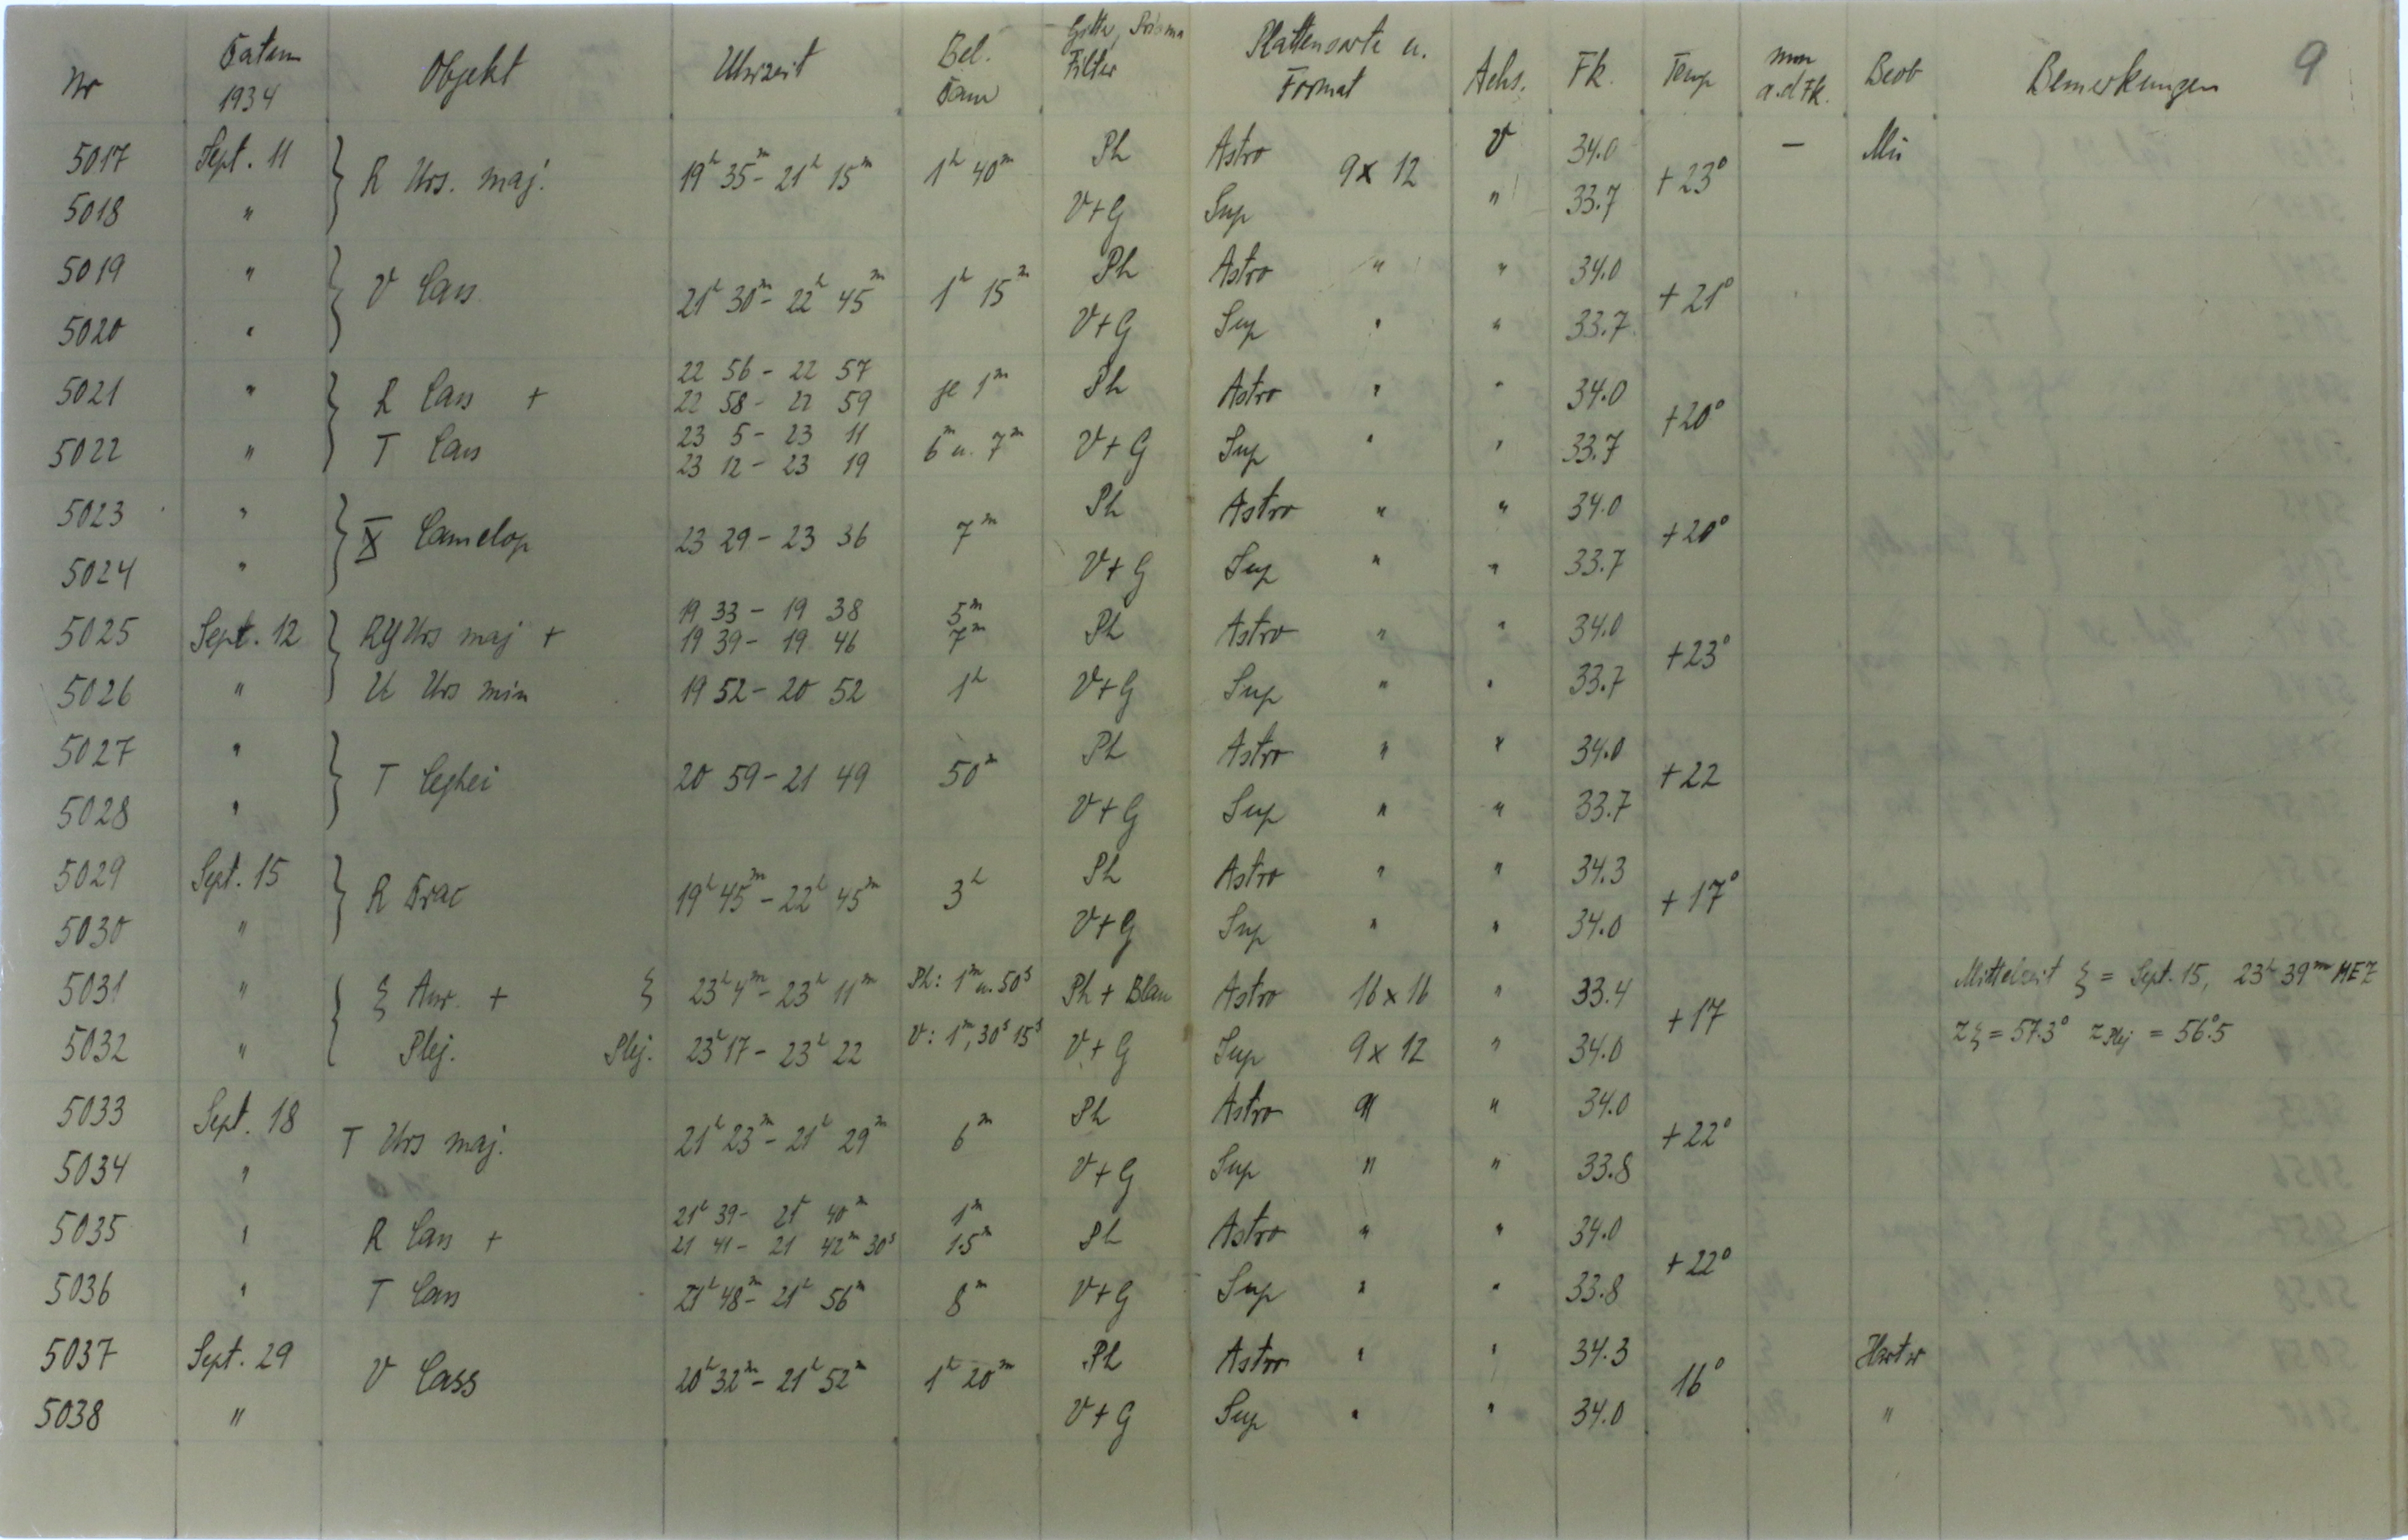 9
Nr Datum 1934 Objekt Uhrzeit Bel. Dauer Gitter, Prisma Filter Plattensorte u. Format Achs. Fk. Temp mm a.d Fk. Beob Bemerkungen
5017 Sept. 11 } R Urs. maj. 19h 35m - 21h 15m 1h 40m Ph Astro 9 x 12 V 34.0 +23° — Mü
5018 " V+G Sup " 33.7
5019 " } V Cass 21h 30m - 22h 45m 1h 15m Ph Astro " " 34.0 +21°
5020 " V+G Sup " " 33.7
5021 " } R Cass + 22 56 - 22 57 je 1m Ph Astro " " 34.0 +20°
22 58 - 22 59
5022 " T Cass 23 5 - 23 11 6m u. 7m V+G Sup " " 33.7
23 12 - 23 19
5023 " } X Camelop 23 29 - 23 36 7m Ph Astro " " 34.0 +20°
5024 " V+G Sup " " 33.7
5025 Sept. 12 } RY Urs maj + 19 33 - 19 38 5m Ph Astro " " 34.0 +23°
19 39 - 19 46 7m
5026 " U Urs min 19 52 - 20 52 1h V+G Sup " " 33.7
5027 " } T Cephei 20 59 - 21 49 50m Ph Astro " " 34.0 +22
5028 " V+G Sup " " 33.7
5029 Sept. 15 } R Drac 19h 45m - 22h 45m 3h Ph Astro " " 34.3 +17°
5030 " V+G Sup " " 34.0
5031 " { ξ Aur. + ξ 23h 4m - 23h 11m Ph: 1m u. 50s Ph + Blau Astro 16 x 16 " 33.4 +17 Mittelzeit ξ = Sept. 15, 23h 39m MEZ
5032 " Plej. Plej. 23h 17 - 23h 22 V: 1m, 30s 15s V+G Sup 9 x 12 " 34.0 zξ = 57.3° z Plej = 56°.5
5033 Sept. 18 T Urs maj. 21h 23m - 21h 29m 6m Ph Astro " " 34.0 +22°
5034 " V+G Sup " " 33.8
5035 " R Cass + 21h 39 - 21 40m 1m Ph Astro " " 34.0 +22°
21 41 - 21 42m 30s 1.5m
5036 " T Cass 21h 48m - 21h 56m 8m V+G Sup " " 33.8
5037 Sept. 29 V Cass 20h 32m - 21h 52m 1h 20m Ph Astro " " 34.3 16° Hartw
5038 " V+G Sup " " 34.0 "